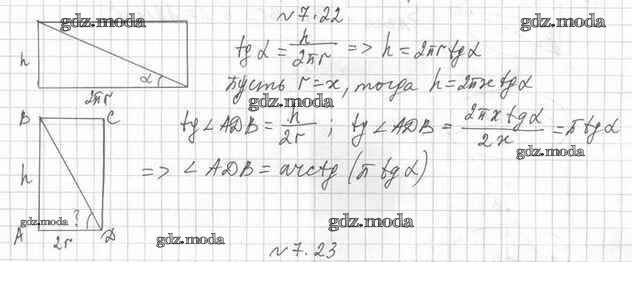 gdz.moda
№7.22
gdz.moda
h
α
2πr
tg α = h/2πr => h = 2πr tg α
Пусть r = x, тогда h = 2πx tg α
gdz.moda
B
C
h
gdz.moda
?
A
2r
D
tg∠ADB = h/2r ; tg∠ADB = 2πx tg α/2x = π tg α
gdz.moda
=> ∠ADB = arctg (π tg α)
gdz.moda
gdz.moda
№7.23